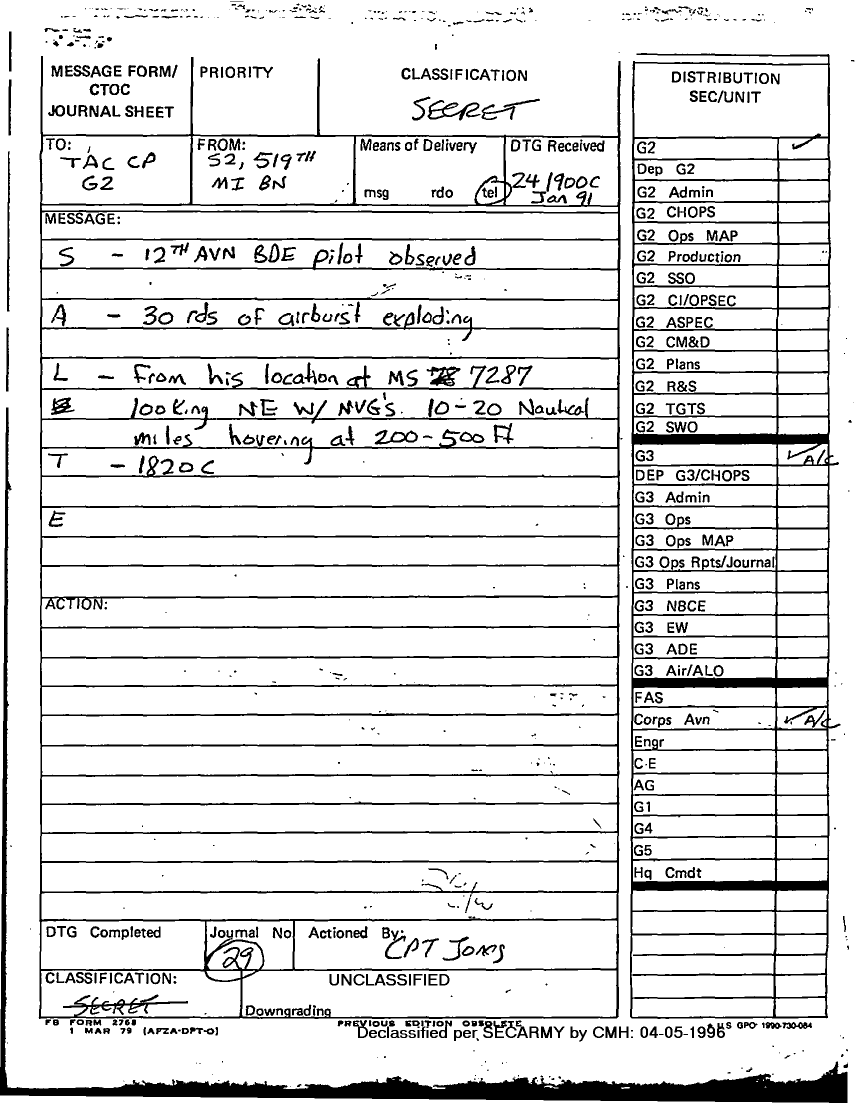 MESSAGE FORM/ PRIORITY CLASSIFICATION
CTOC
JOURNAL SHEET SECRET
TO: FROM: Means of Delivery DTG Received
TAC CP S2, 519TH
G2 MI BN msg rdo tel 241900C
Jan 91
MESSAGE:
S - 12TH AVN BDE pilot observed
A - 30 rds of airburst exploding
L - From his location at MS 7287
looking NE W/ NVG's. 10-20 Nautical
miles hovering at 200-500 Ft
T - 1820C
E
ACTION:
DTG Completed Journal No Actioned By:
29 CPT Jones
CLASSIFICATION: UNCLASSIFIED
SECRET
Downgrading
FB FORM 2768 PREVIOUS EDITION OBSOLETE
1 MAR 79 (AFZA-DPT-O) Declassified per SECARMY by CMH: 04-05-1996 US GPO: 1990-730-084
DISTRIBUTION
SEC/UNIT
G2
Dep G2
G2 Admin
G2 CHOPS
G2 Ops MAP
G2 Production
G2 SSO
G2 CI/OPSEC
G2 ASPEC
G2 CM&D
G2 Plans
G2 R&S
G2 TGTS
G2 SWO
G3 A/C
DEP G3/CHOPS
G3 Admin
G3 Ops
G3 Ops MAP
G3 Ops Rpts/Journal
G3 Plans
G3 NBCE
G3 EW
G3 ADE
G3 Air/ALO
FAS
Corps Avn A/C
Engr
C-E
AG
G1
G4
G5
Hq Cmdt